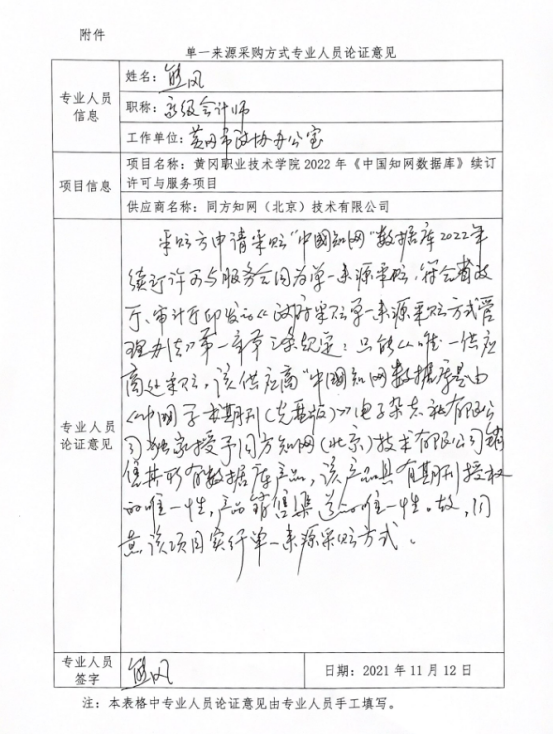 附件
单一来源采购方式专业人员论证意见
专业人员
信息
姓名：熊风
职称：高级会计师
工作单位：黄冈市政协办公室
项目信息
项目名称：黄冈职业技术学院 2022 年《中国知网数据库》续订
许可与服务项目
供应商名称：同方知网（北京）技术有限公司
专业人员
论证意见
采购方申请采购“中國知网”数据库2022年
续订许可与服务合同为单一来源采购，符合省财政
厅、审计厅印发的《政府采购单一来源采购方式管
理办法》第一章第三条规定：只能从唯一供应
商处采购，该供应商“中國知网数据库是由
《中國学术期刊(光盘版)》电子杂志社有限公
司独家授予同方知网(北京)技术有限公司销
售其所有数据库产品，该产品具有期刊授权
的唯一性，产品销售渠道的唯一性。故，同
意该项目实行单一来源采购方式。
专业人员
签字
熊风
日期：2021 年 11 月 12 日
注：本表格中专业人员论证意见由专业人员手工填写。